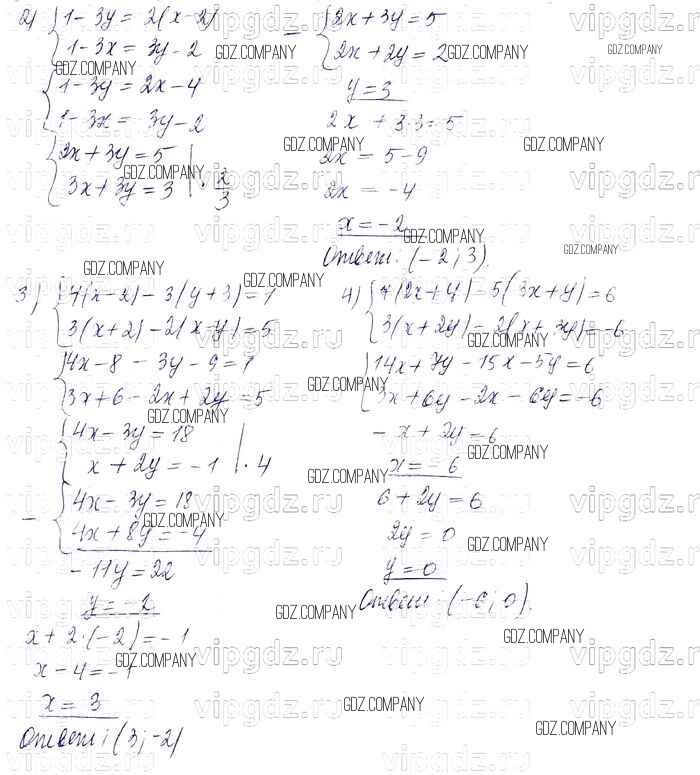 2) {1-3y = 2(x-2)
1-3x = 3y-2
{1-3y = 2x-4
1-3x = 3y-2
{2x+3y=5
3x+3y=3 | · 2/3
- {2x+3y=5
2x+2y=2
y=3
2x + 3·3=5
2x = 5-9
2x = -4
x=-2
Ответ: (-2;3).
3) {4(x-2)-3(y+3)=1
3(x+2)-2(x-y)=5
{4x-8-3y-9=1
3x+6-2x+2y=5
{4x-3y=18
x+2y=-1 | · 4
- {4x-3y=18
4x+8y=-4
-11y=22
y=-2
x+2·(-2)=-1
x-4=-1
x = 3
Ответ: (3;-2)
4) {7(2x+y)-5(3x+y)=6
3(x+2y)-2(x+3y)=-6
{14x+7y-15x-5y=6
3x+6y-2x-6y=-6
-x+2y=6
x=-6
6+2y=6
2y=0
y=0
Ответ: (-6;0).
GDZ.COMPANY
vipgdz.ru